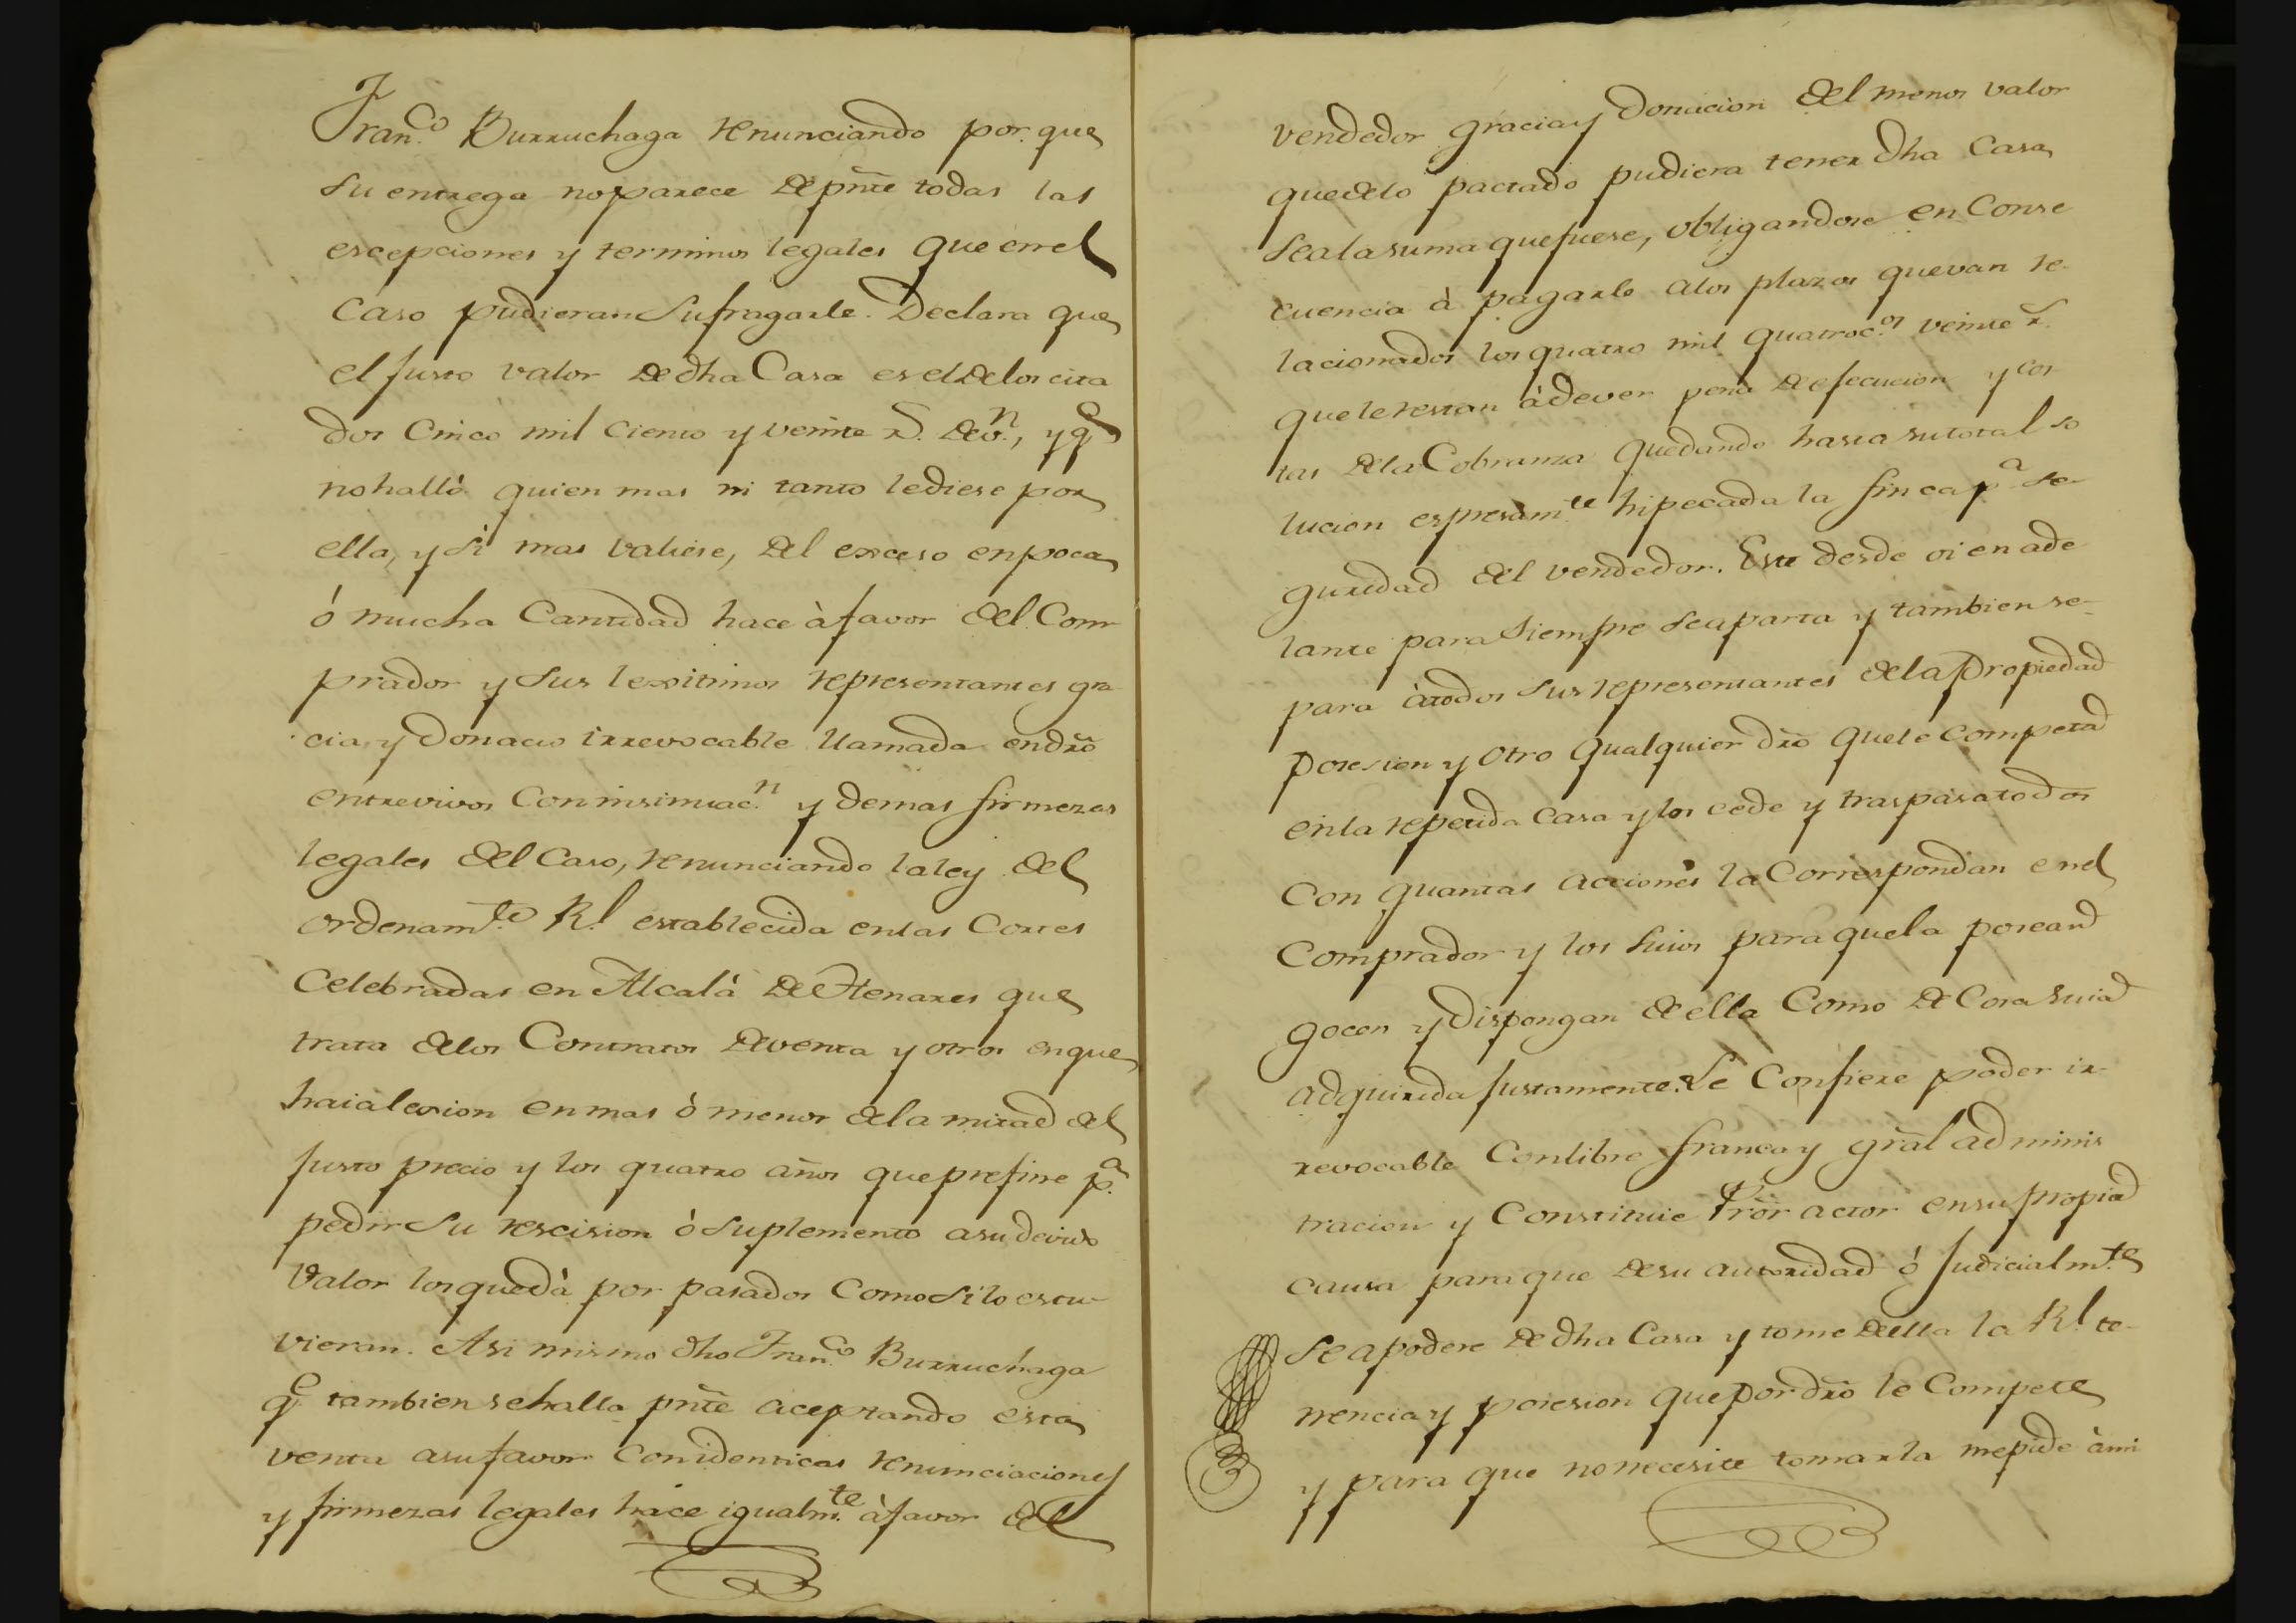 Fran.co Burruchaga renunciando por que
su entrega no parece de pñte todas las
escepciones y terminos legales que en el
caso pudieran sufragarle. Declara que
el justo valor de dha Casa es el de los cita
dos Cinco mil ciento y veinte r.s de v.n, y q.e
no halló quien mas ni tanto le diese por
ella, y si mas valiese, del exceso en poca
ó mucha Cantidad hace à favor del Com
prador y sus lexitimos representantes gra
cia, y donacio irrevocable llamada en dro
entrevivos Con insinuac.n y demas firmezas
legales del Caso, renunciando la ley del
ordenam.to R.l establecida en las Cortes
Celebradas en Alcalá de Henares que
trata de los Contratos de venta y otros en que
haia lesion en mas ò menos de la mitad del
justo precio y los quatro años que prefine p.a
pedir su rescision ò suplemento a su devido
valor los que dà por pasados como si lo estu-
vieran. Asi mismo dho Fran.co Burruchaga
q.e tambien se halla pñte aceptando esta
venta a su favor con identicas renunciaciones
y firmezas legales hace igualm.te à favor del
vendedor gracia y donacion del menos valor
que de lo pactado pudiera tener dha Casa
sea la suma que fuese, obligandose en Conse
cuencia à pagarle a los plazos que van re-
lacionados los quatro mil quatroc.os veinte r.s
que le restan à dever pena de ejecucion y cos
tas de la Cobranza quedando hasta su total so
lucion espresam.te hipecada la finca p.a se-
guridad del vendedor. Este desde oi en ade
lante para siempre se aparta y tambien se-
para à todos sus representantes de la propiedad
posesion y otro qualquier dro que le competa
en la repetida casa y los cede y traspasa todos
con quantas acciones la Correspondan en el
Comprador y los suios para que la posean
gocen y dispongan de ella Como de Cosa suia
adquirida justamente. Le Confiere poder ir-
revocable con libre franca y gral adminis
tracion y Constituie Pror actor en su propia
causa para que de su autoridad ó judicialm.te
se apodere de dha Casa y tome de ella la R.l te-
nencia y posesion que por dro le Compete
y para que no necesite tomarla me pide à mi